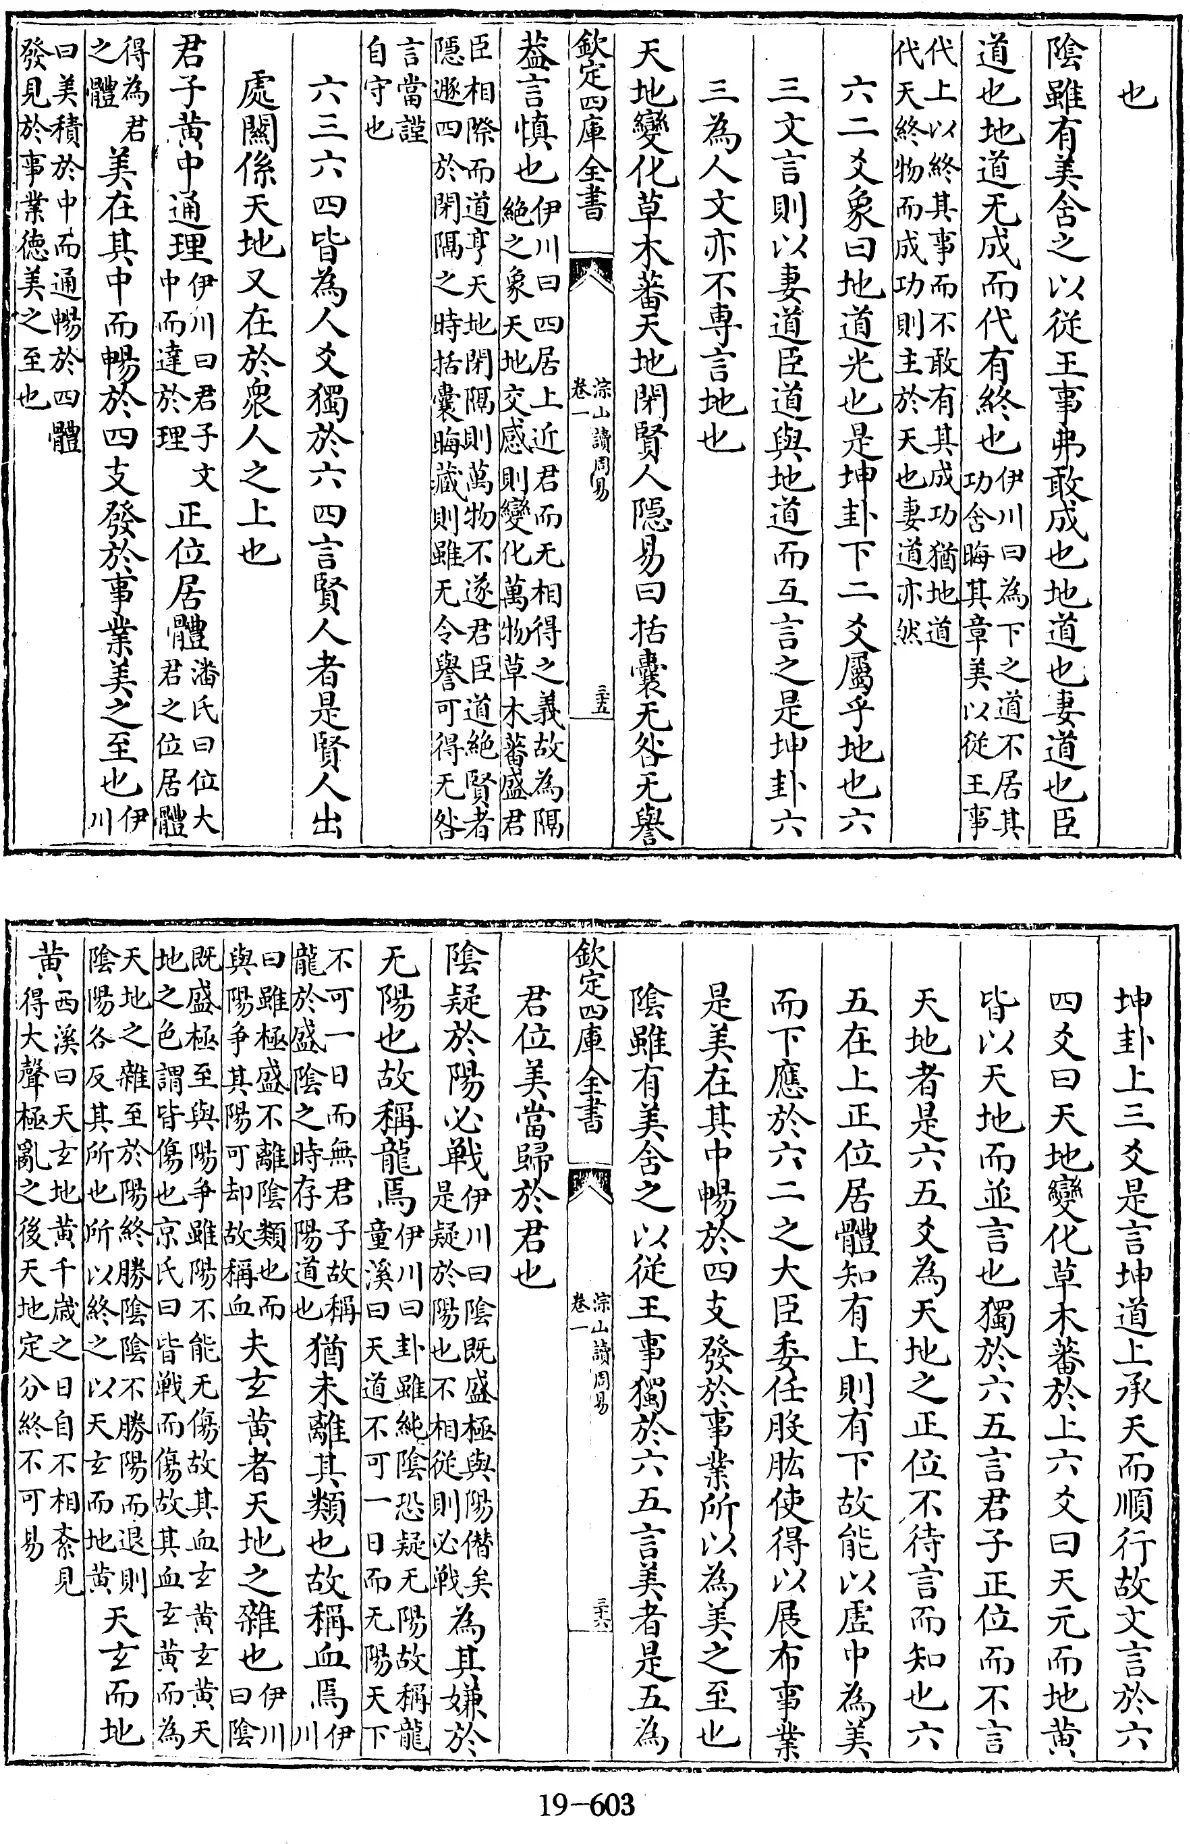 也
陰雖有美含之以從王事弗敢成也地道也妻道也臣
道也地道无成而代有終也伊川曰為下之道不居其功含晦其章美以從王事
代上以終其事而不敢有其成功猶地道代天終物而成功則主於天也妻道亦然
六二爻象曰地道光也是坤卦下二爻屬乎地也六
三文言則以妻道臣道與地道而互言之是坤卦六
三為人文亦不專言地也
天地變化草木蕃天地閉賢人隱易曰括囊无咎无譽
欽定四庫全書
淙山讀周易
卷一
三十五
葢言慎也伊川曰四居上近君而无相得之義故為隔絕之象天地交感則變化萬物草木蕃盛君
臣相際而道亨天地閉隔則萬物不遂君臣道絕賢者隱遯四於閉隔之時括囊晦藏則雖无令譽可得无咎
言當謹自守也
六三六四皆為人爻獨於六四言賢人者是賢人出
處關係天地又在於衆人之上也
君子黃中通理伊川曰君子文中而達於理正位居體潘氏曰位大君之位居體
得為君之體美在其中而暢於四支發於事業美之至也伊川
曰美積於中而通暢於四體發見於事業德美之至也
坤卦上三爻是言坤道上承天而順行故文言於六
四爻曰天地變化草木蕃於上六爻曰天元而地黃
皆以天地而並言也獨於六五言君子正位而不言
天地者是六五爻為天地之正位不待言而知也六
五在上正位居體知有上則有下故能以虛中為美
而下應於六二之大臣委任股肱使得以展布事業
是美在其中暢於四支發於事業所以為美之至也
陰雖有美含之以從王事獨於六五言美者是五為
欽定四庫全書
淙山讀周易
卷一
三十六
君位美當歸於君也
陰疑於陽必戰伊川曰陰既盛極與陽偕矣是疑於陽也不相從則必戰為其嫌於
无陽也故稱龍焉伊川曰卦雖純陰恐疑无陽故稱龍童溪曰天道不可一日而无陽天下
不可一日而無君子故稱龍於盛陰之時存陽道也猶未離其類也故稱血焉伊川
曰雖極盛不離陰類也而與陽爭其陽可却故稱血夫玄黃者天地之雜也伊川曰陰
既盛極至與陽爭雖陽不能无傷故其血玄黃玄黃天地之色謂皆傷也京氏曰皆戰而傷故其血玄黃而為
天地之雜至於陽終勝陰陰不勝陽而退則陰陽各反其所也所以終之以天玄而地黃天玄而地
黃西溪曰天玄地黃千歲之日自不相紊見得大聲極亂之後天地定分終不可易
19-603